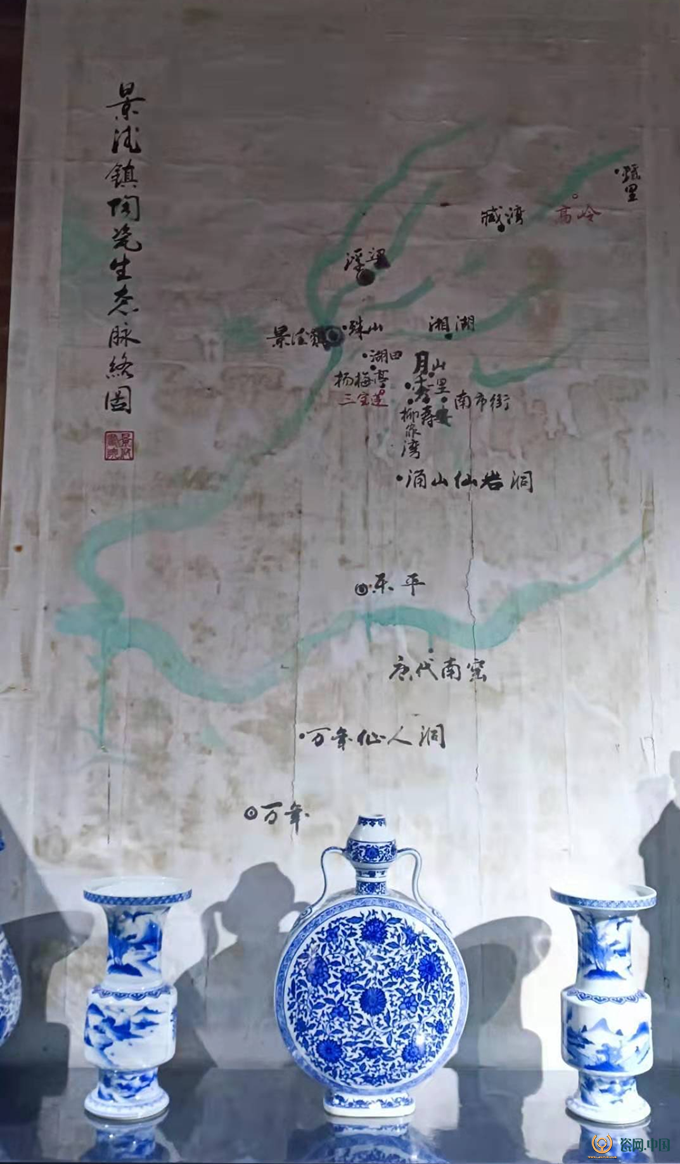 景德鎮陶瓷生态脉絡图
瑶里
臧湾
高岭
浮梁
景德鎮
珠山
湘湖
湖田
杨梅亭
三宝蓬
南市街
寿安
柳家湾
涌山仙岩洞
乐平
唐代南窑
万年仙人洞
万年
瓷网.中国